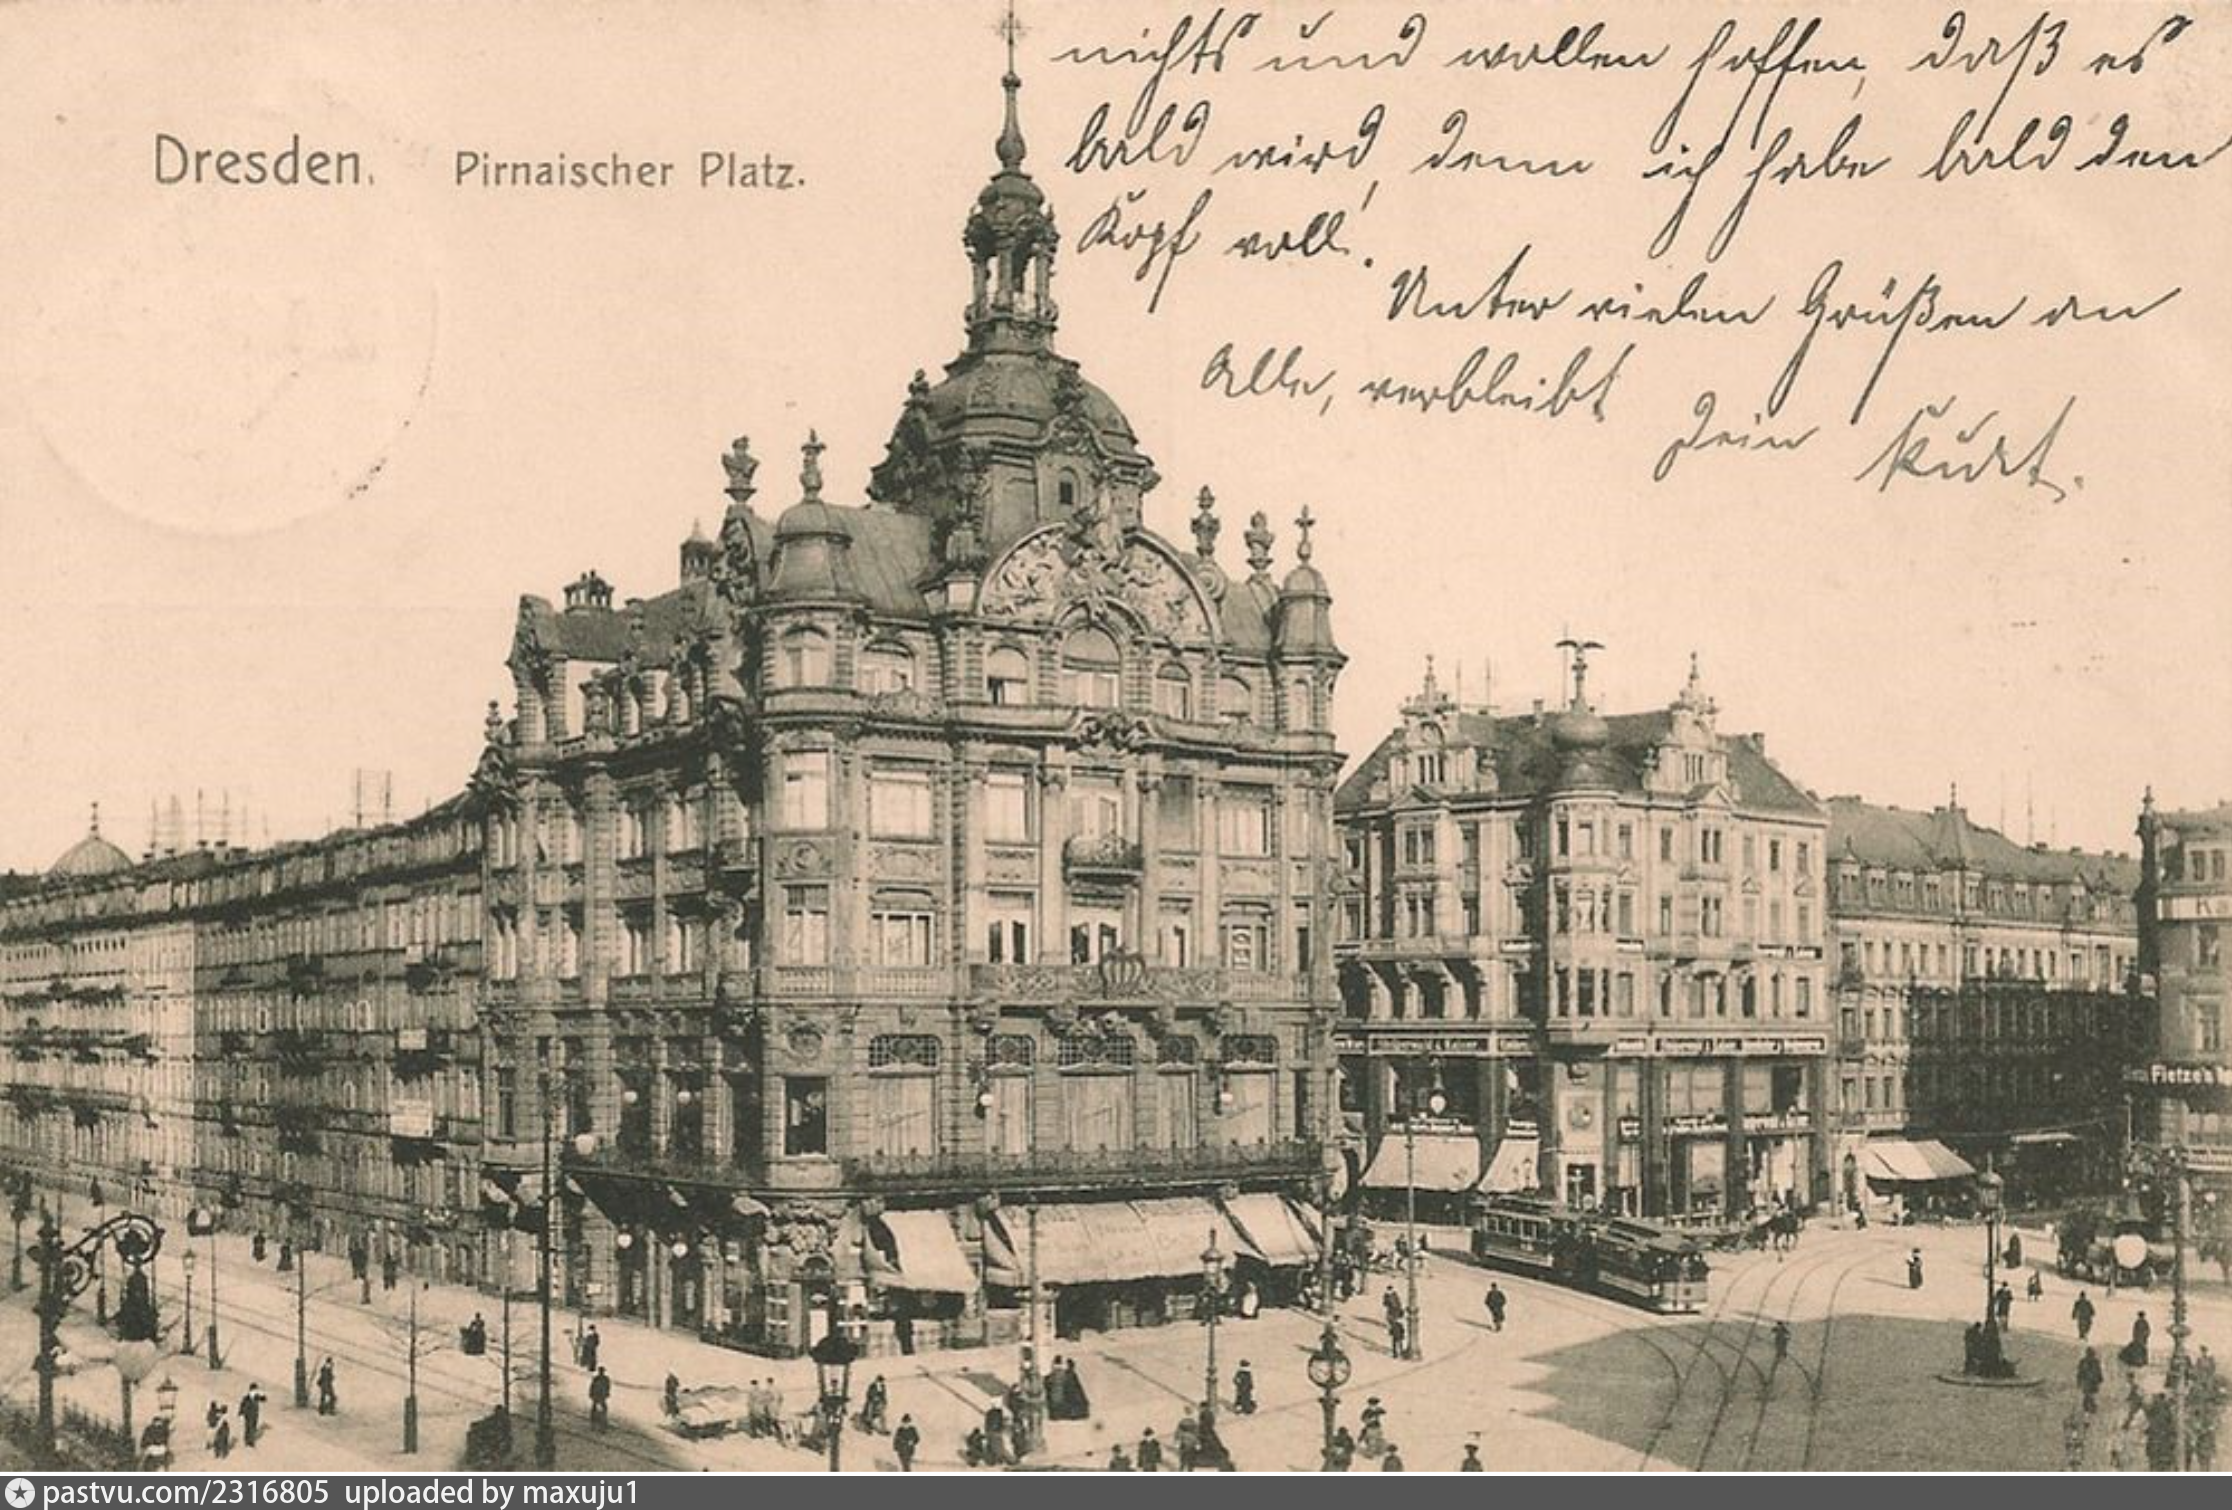 Dresden. Pirnaischer Platz.
nichts und wollen hoffen, daß es
bald wird, denn ich habe bald den
Kopf voll.
Unter vielen Grüßen an
Alle, verbleibt
Dein Kurt.
Fietze's
pastvu.com/2316805 uploaded by maxuju1